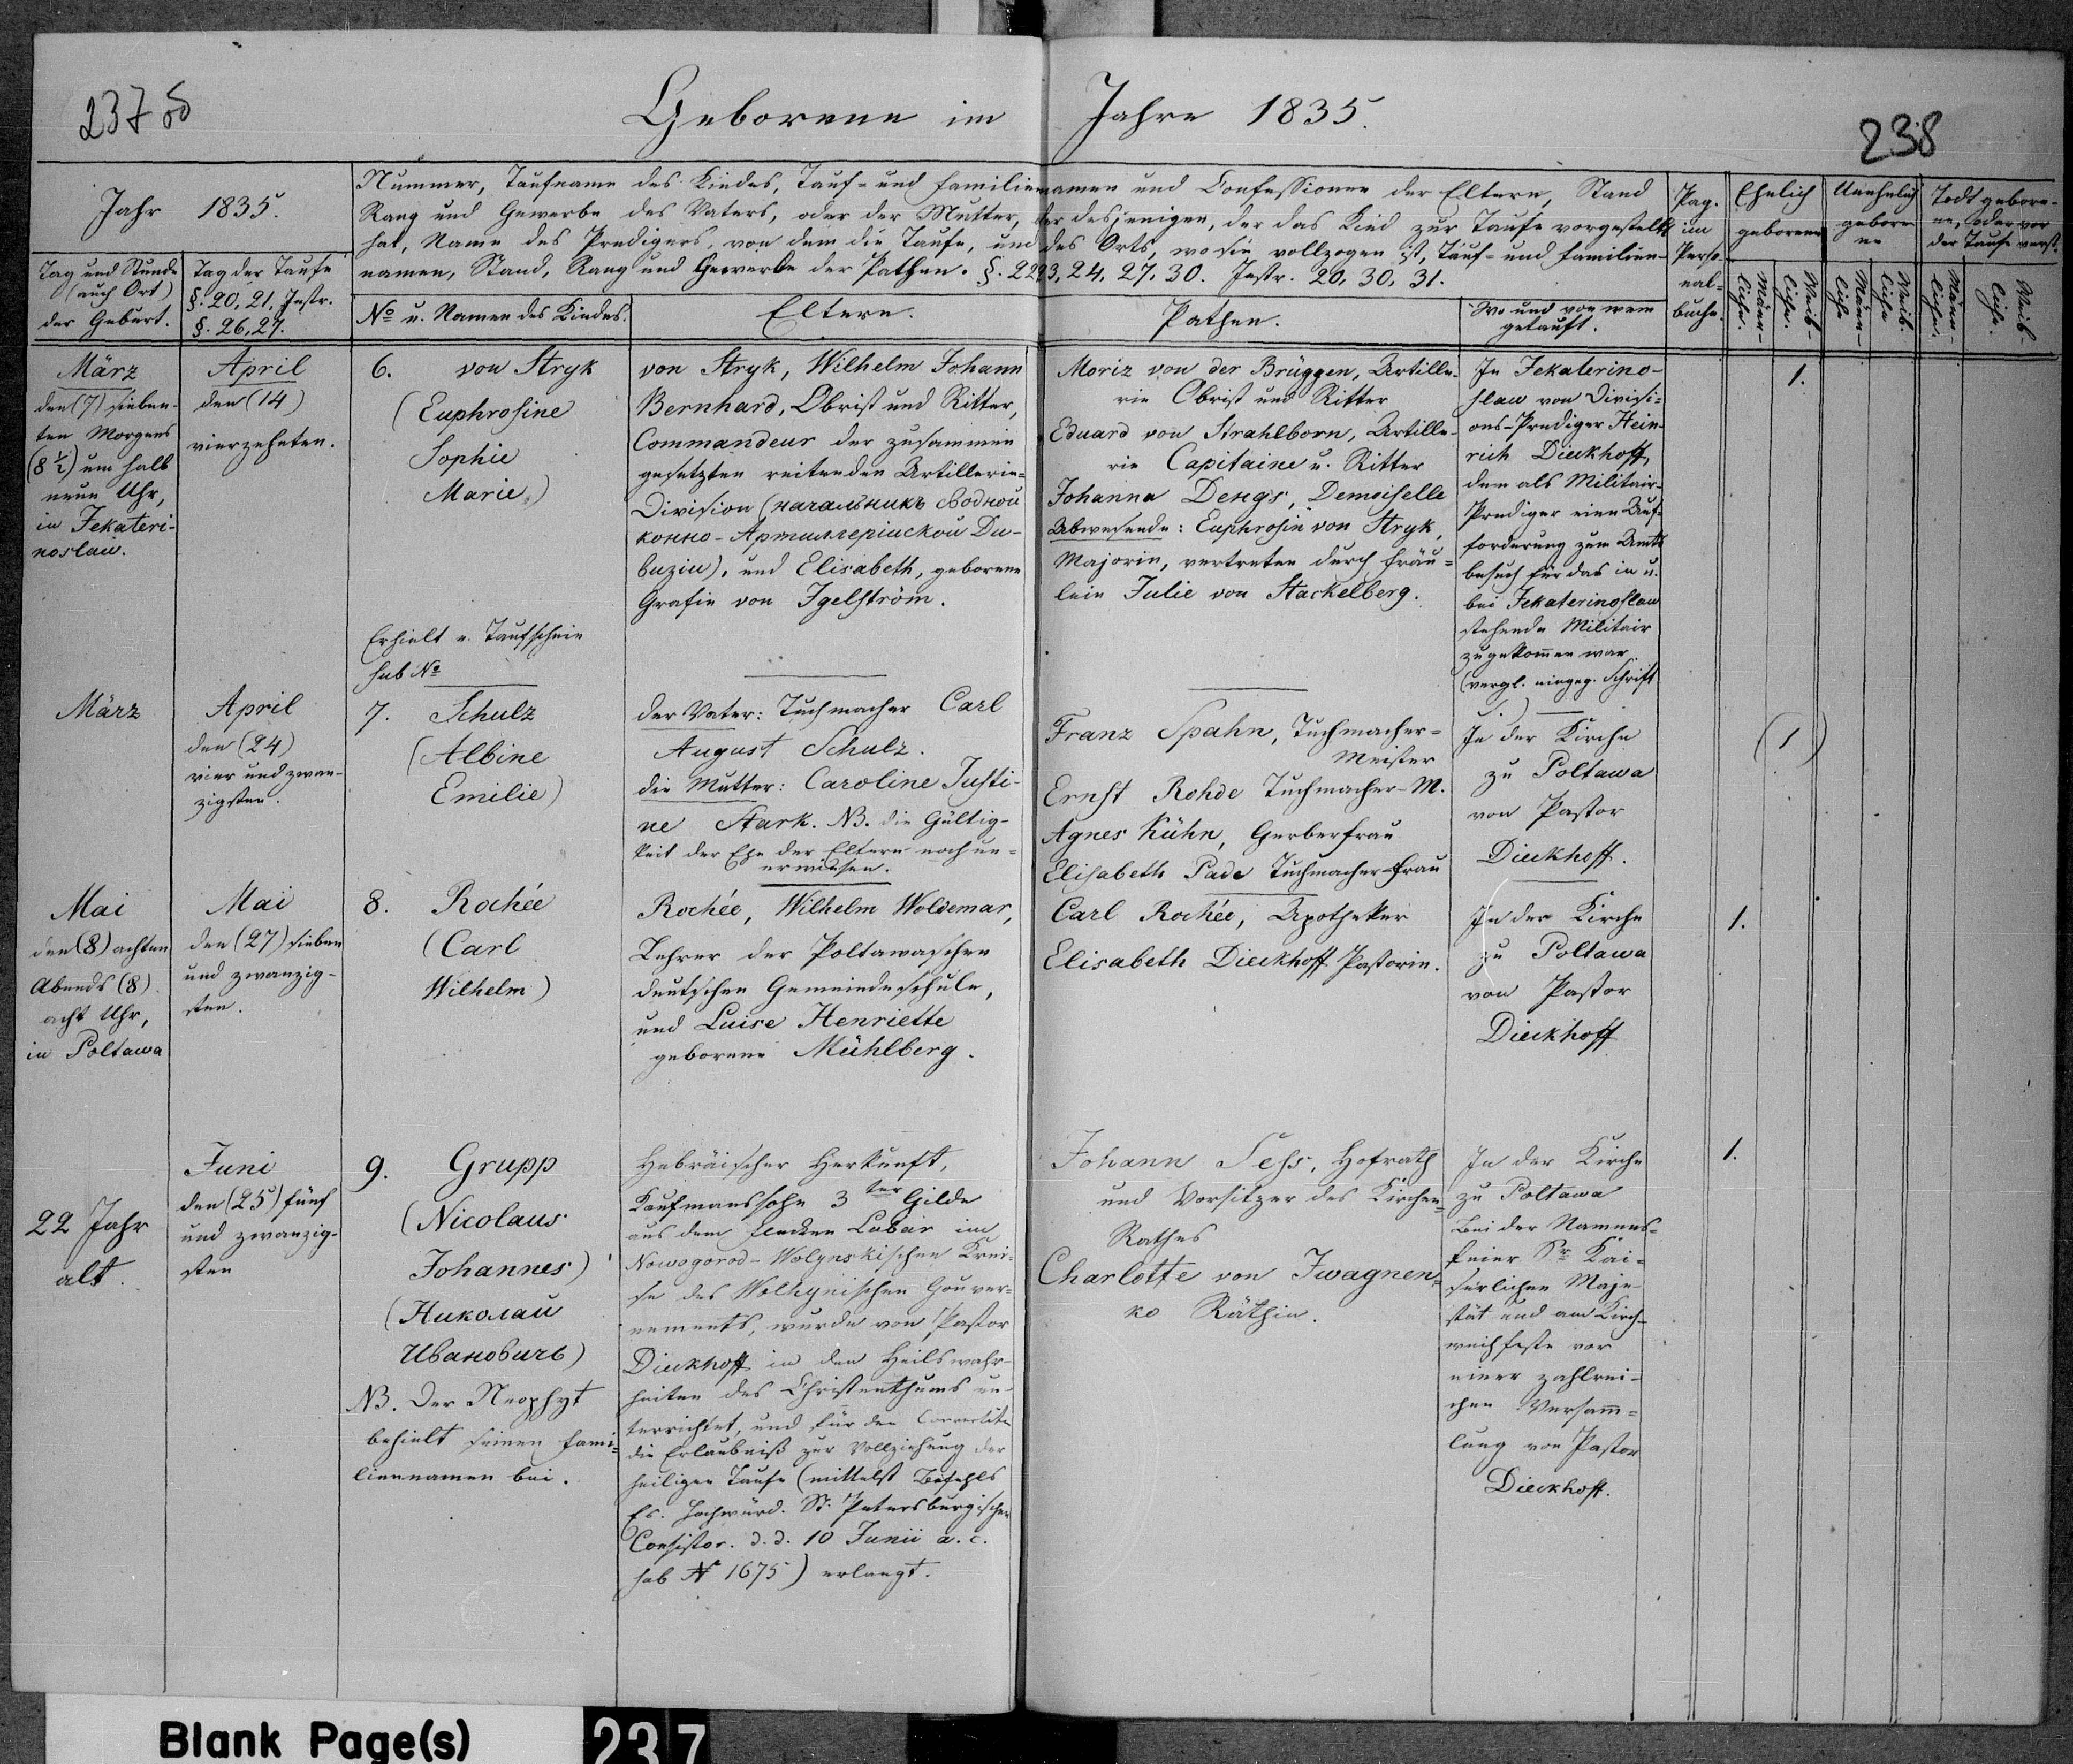 237 об
Geborene im Jahre 1835.
238
Jahr 1835.
Tag und Stunde
(auch Ort)
der Geburt.
Tag der Taufe
§. 20, 21, Instr.
§. 26, 27.
Nummer, Taufname des Kindes, Tauf- und Familiennamen und Confessionen der Eltern, Stand
Rang und Gewerbe des Vaters, oder der Mutter, oder desjenigen, der das Kind zur Taufe vorgestellt
hat, Name des Predigers, von dem die Taufe, und des Orts, wo sie vollzogen ist, Tauf- und Familien-
namen, Stand, Rang und Gewerbe der Pathen. §. 2223, 24, 27, 30. Instr. 20, 30, 31.
No u. Namen des Kindes.
Eltern.
Pathen.
Wo und von wem
getauft.
Pag.
im
Perso-
nal-
buche.
Ehelich
geborene
Unehelich
gebore
ne
Todt gebore-
ne, oder vor
der Taufe verst.
Männ-
liche.
Weib-
liche.
Männ-
liche
Weib-
liche
Männ-
liche.
Weib-
liche.
März
den (7) sieben-
ten Morgens
(8 ½) um halb
neun Uhr,
in Jekateri-
noslau.
April
den (14)
vierzehnten.
6. von Stryk
(Euphrosine
Sophie
Marie)
Erhielt e. Taufschein
sub No
von Stryk, Wilhelm Johann
Bernhard, Obrist und Ritter,
Commandeur der zusammen
gesetzten reitenden Artillerie-
Division (начальникъ сводной
конно-Артиллерійской Ди-
визіи), und Elisabeth, geborene
Grafin von Igelström.
Moriz von der Brüggen, Artille-
rie Obrist und Ritter
Eduard von Strahlborn, Artille-
rie Capitaine u. Ritter
Johanna Dengs, Demoiselle
Abwesende: Euphrosin von Stryk,
Majorin, vertreten durch Fräu-
lein Julie von Stackelberg.
In Jekaterino-
slau von Divisi-
ons-Prediger Hein-
rich Dieckhoff,
dem als Militair-
Prediger eine Auf-
forderung zum Amts
besuch für das in u.
bei Jekaterinoslau
stehende Militair
zugekommen war
(vergl. eingeg. Schrift
1.
März
April
den (24)
vier und zwan-
zigsten.
7. Schulz
(Albine
Emilie)
der Vater: Tuchmacher Carl
August Schulz.
die Mutter: Caroline Justi-
ne Stark. NB. die Gültig-
keit der Ehe der Eltern noch un-
erwiesen.
Franz Spahn, Tuchmacher-
Meister
Ernst Rohde Tuchmacher-M.
Agnes Kühn, Gerberfrau
Elisabeth Pade Tuchmacher-Frau
In der Kirche
zu Poltawa
von Pastor
Dieckhoff.
(1)
Mai
den (8) achten
Abends (8)
acht Uhr,
in Poltawa
Mai
den (27) sieben
und zwanzig-
sten.
8. Rochée
(Carl
Wilhelm)
Rochée, Wilhelm Woldemar,
Lehrer der Poltawaschen
deutschen Gemeindeschule,
und Luise Henriette
geborene Mühlberg.
Carl Rochée, Apotheker
Elisabeth Dieckhoff Pastorin.
In der Kirche
zu Poltawa
von Pastor
Dieckhoff
1.
22 Jahr
alt.
Juni
den (25) fünf
und zwanzig-
sten
9. Grupp
(Nicolaus
Johannes)
(Николай
Ивановичъ)
NB. Der Neophyt
behielt seinen Fami-
liennamen bei.
Hebräischer Herkunft,
Kaufmannssohn 3ter Gilde
aus dem Flecken Lubar im
Nowogorod-Wolynskischen Krei-
se des Wolhynischen Gouver-
nements, wurde von Pastor
Dieckhoff in den Heilswahr-
heiten des Christenthums un-
terrichtet, und für den Convertite
die Erlaubniß zur Vollziehung der
heiligen Taufe (mittelst Befehls
Es. Hochwürd. St. Petersburgischen
Consistor. d. d. 10 Junii a. c.
sub N 1675) erlangt.
Johann Sess, Hofrath
und Vorsitzer des Kirchen-
Rathes
Charlotte von Iwagnen-
ko Räthin.
In der Kirche
zu Poltawa
Bei der Namens-
feier Sr Kai-
serlichen Maje-
stät und am Kirch-
weihfeste vor
einer zahlrei-
chen Versamm-
lung von Pastor
Dieckhoff.
1.
Blank Page(s) 237